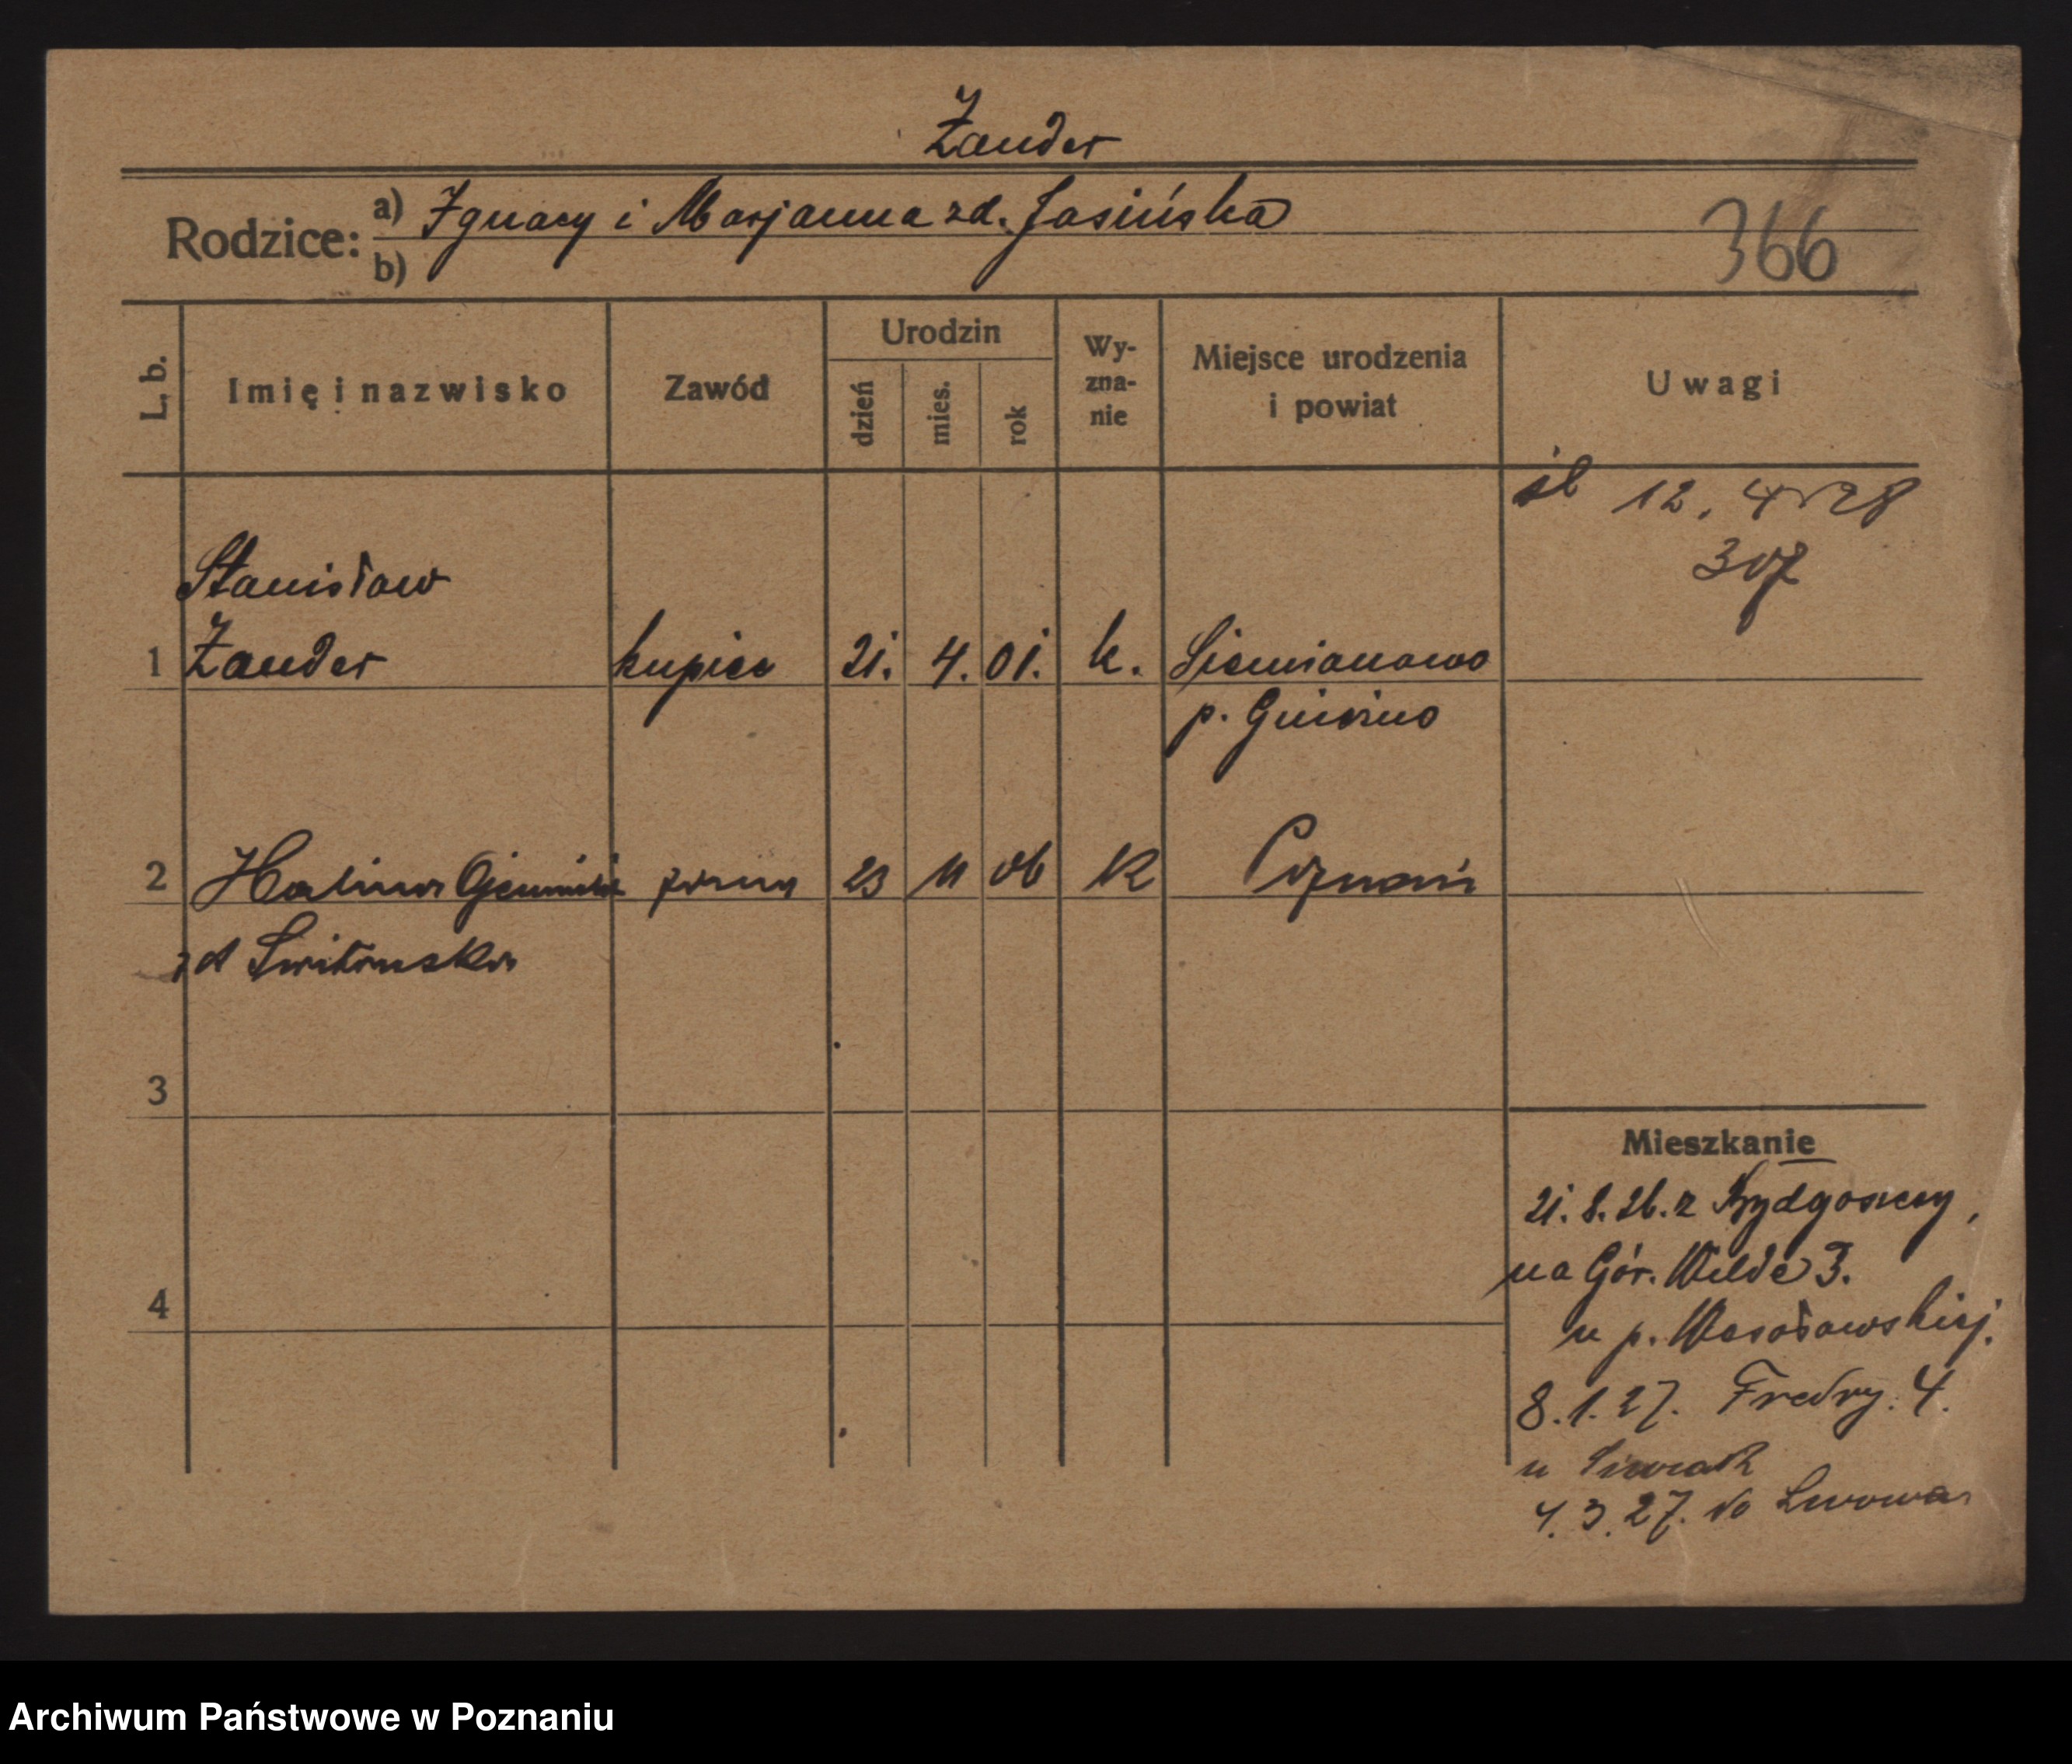 Zander
Rodzice: a) Ignacy i Marjanna zd. Jasińska
b)
366
L. b.
Imię i nazwisko
Zawód
Urodzin
dzień
mies.
rok
Wy-
zna-
nie
Miejsce urodzenia
i powiat
Uwagi
śl 12. 4 28
307
Stanisław
1 Zander kupiec 21. 4. 01. k. Siemianowo
p. Gniezno
2 Halina żona 23 11 06 k Poznań
zd
3
4
Mieszkanie
21. 8. 26. z Bydgoszczy,
na Gór. Wilde 3.
u p. Wesołowskiej.
8. 1. 27. Fredry. 4.
u
4. 3. 27. do Lwowa
Archiwum Państwowe w Poznaniu